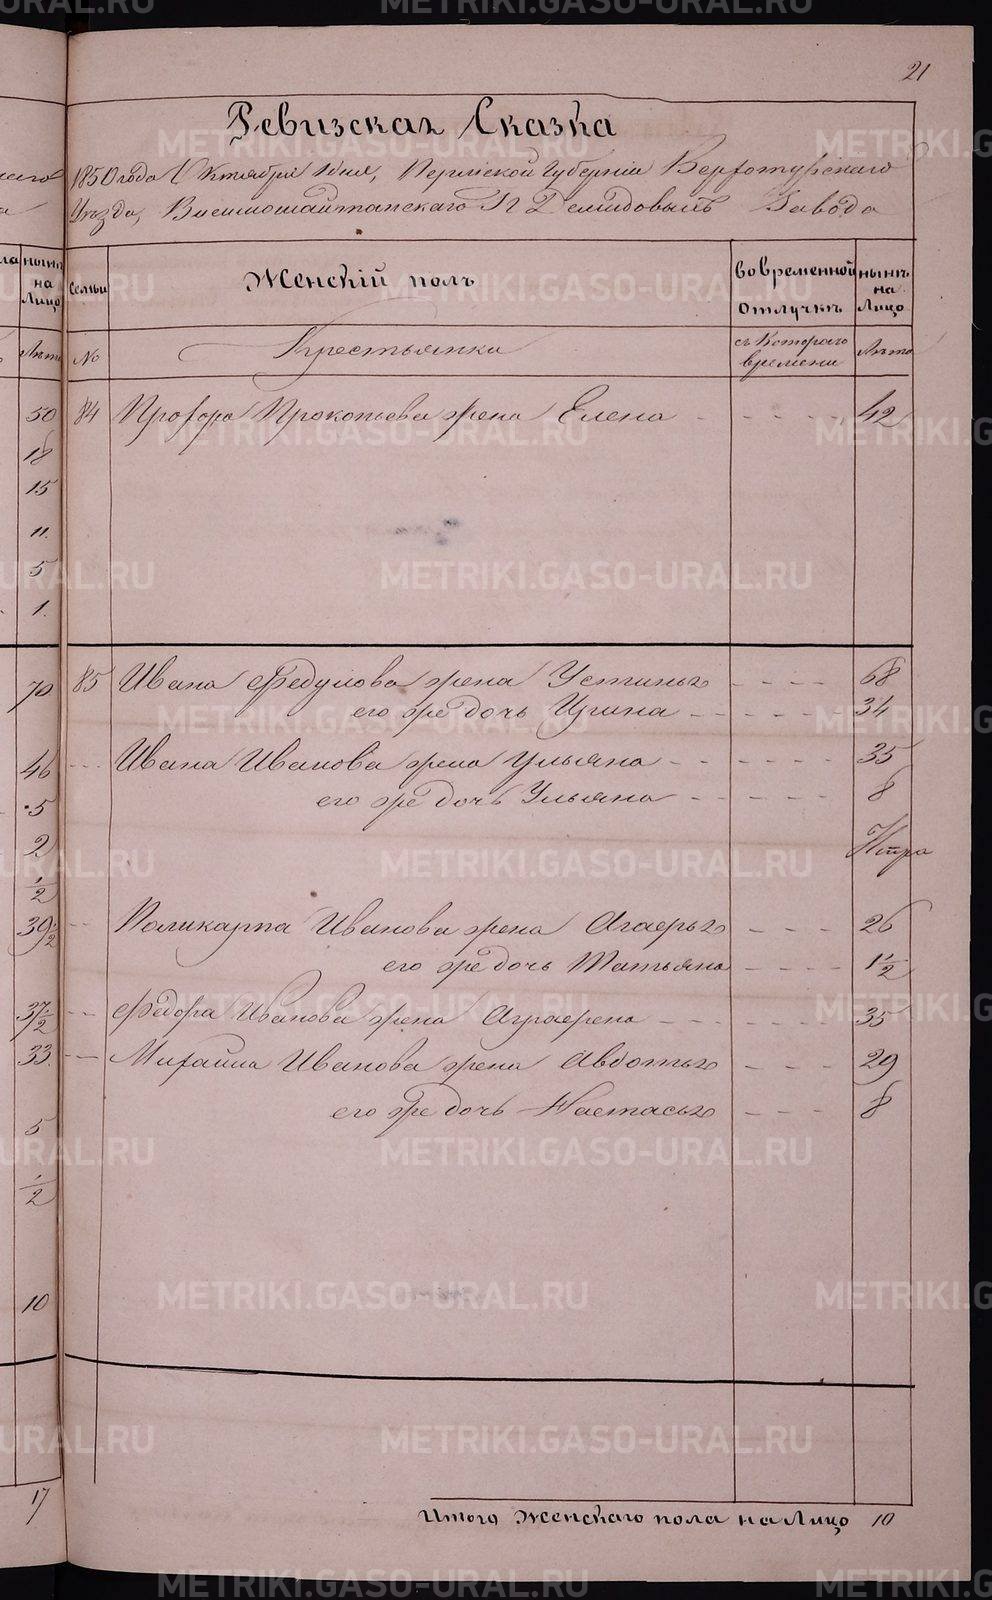 21
Ревизская Сказка
1850 года Октября дня, Пермской Губерніи Верхотурскаго
Уѣзда, Висимошайтанскаго Гг Демидовыхъ Завода
Семьи
Женскій полъ
во временной отлучкѣ
нынѣ на Лицо
№
Крестьянки
съ котораго времени
Лѣта
84 Прохора Прокопьева жена Елена 42
85 Ивана Федулова жена Устинья 68
его же дочь Ирина 34
Ивана Иванова жена Ульяна 35
его же дочь Ульяна 8
Поликарпа Иванова жена Агафья 26
его же дочь Татьяна 1 1/2
Федора Иванова жена Аграфена 35
Михайла Иванова жена Авдотья 29
его же дочь Настасья 8
Итого Женскаго пола на Лицо 10
нынѣ на Лицо
Лѣта
50
18
15
11.
5
1.
70
46
5
2
1/2
39 1/2
37 1/2
33.
5
1/2
10
17
METRIKI.GASO-URAL.RU